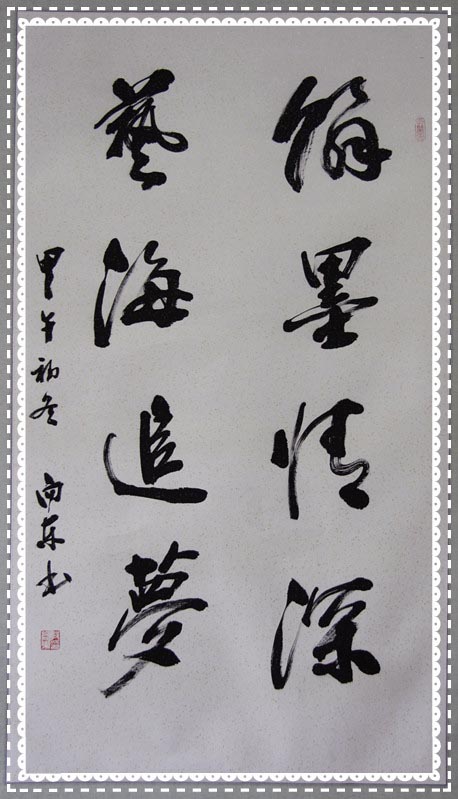 翰墨情深
藝海追夢
甲午初冬 向東书